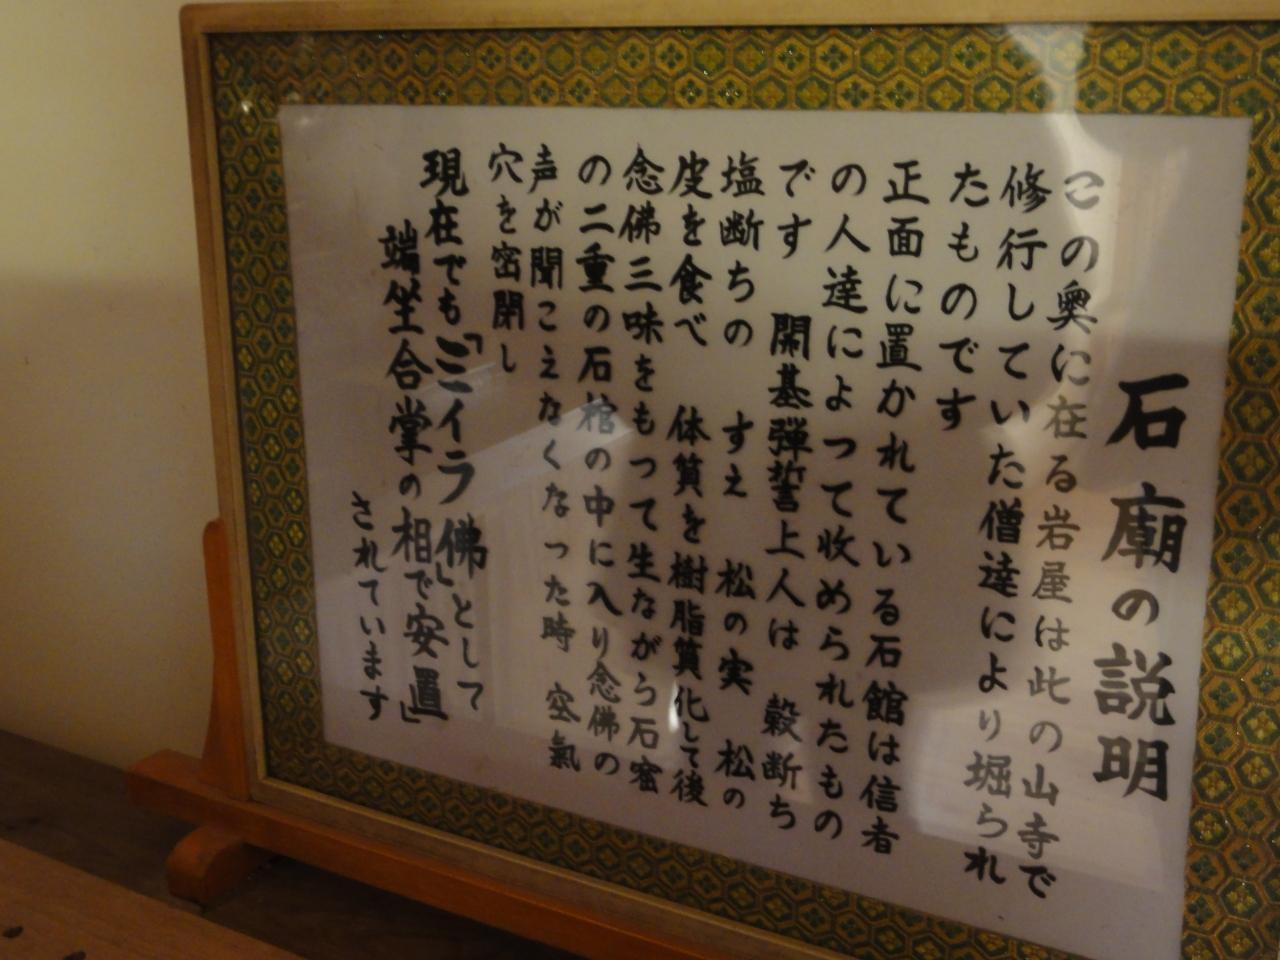 石廟の説明
この奥に在る岩屋は此の山寺で
修行していた僧達により堀られ
たものです
正面に置かれている石館は信者
の人達によって收められたもの
です 開基弾誓上人は 穀断ち
塩断ちの すえ 松の実 松の
皮を食べ 体質を樹脂質化して後
念佛三昧をもって生ながら石窟
の二重の石棺の中に入り念佛の
声が聞こえなくなった時 空氣
穴を密閉し
現在でも「ミイラ佛」として
端坐合掌の相で安置」
されています